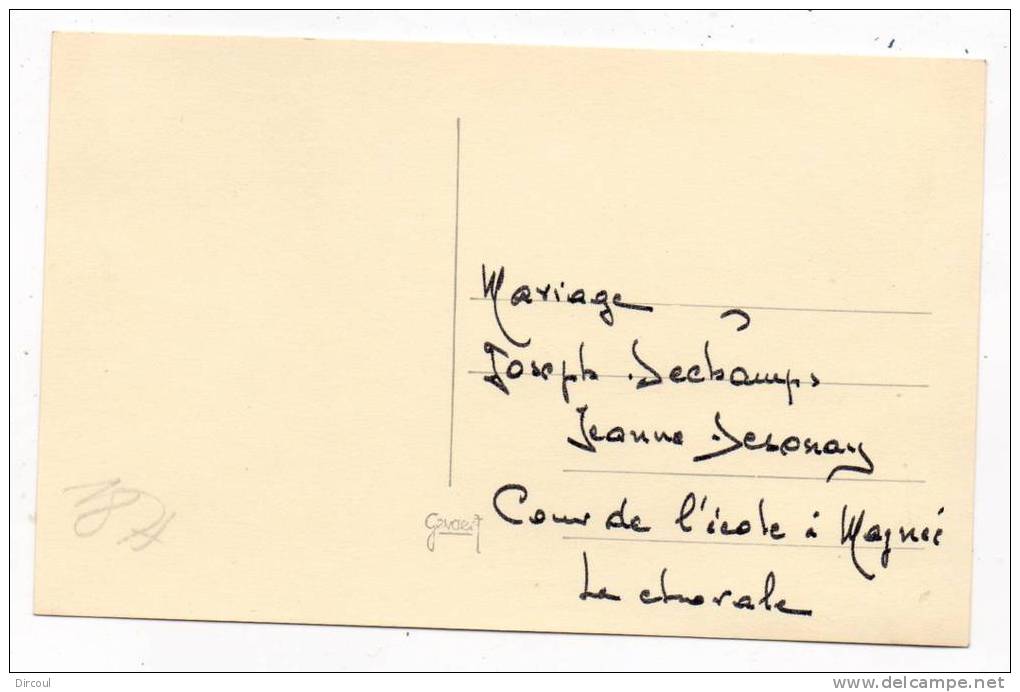 Mariage
Joseph Dechamps
Jeanne Desonay
Cour de l'école à Magnée
La chorale
Gevaert
Dircoul
www.delcampe.net